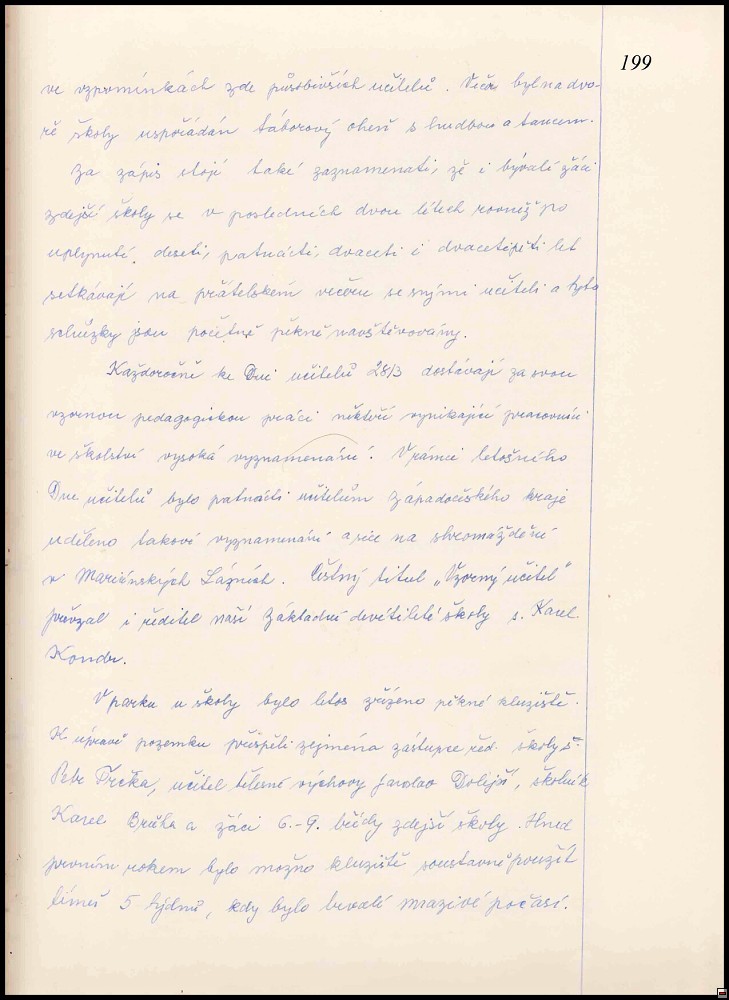 199
ve vzpomínkách zde působivších učitelů. Večer byl na dvo-
ře školy uspořádán táborový oheň s hudbou a tancem.
Za zápis stojí také zaznamenati, že i bývalí žáci
zdejší školy se v posledních dvou létech rovněž po
uplynutí deseti, patnácti, dvaceti i dvacetipěti let
setkávají na přátelském večeru se svými učiteli a tyto
schůzky jsou početně pěkně navštěvovány.
Každoročně ke Dni učitelů 28/3 dostávají za svou
vzornou pedagogickou práci někteří vynikající pracovníci
ve školství vysoká vyznamenání. V rámci letošního
Dne učitelů bylo patnácti učitelům Západočeského kraje
uděleno takové vyznamenání a sice na shromáždění
v Mariánských Lázních. Čestný titul „Vzorný učitel"
převzal i ředitel naší Základní devítileté školy s. Karel
Kondr.
V parku u školy bylo letos zřízeno pěkné kluziště.
K úpravě pozemku přispěli zejména zástupce řed. školy s.
Petr Trčka, učitel tělesné výchovy Jaroslav Dolejší, školník
Karel Brůha a žáci 6.-9. třídy zdejší školy. Hned
prvním rokem bylo možno kluziště soustavně použít
téměř 5 týdnů, kdy bylo trvalé mrazivé počasí.